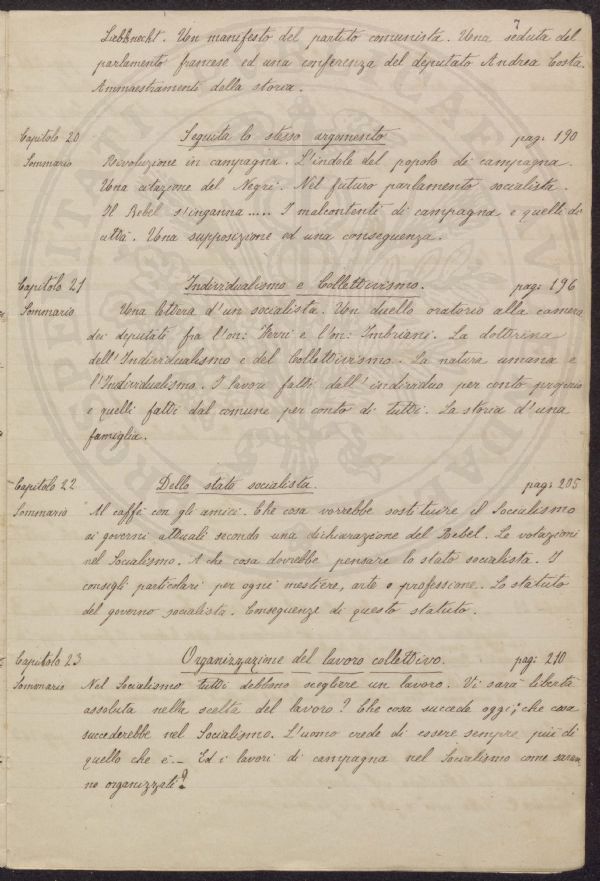 7
Liebknecht. Un manifesto del partito comunista. Una seduta del
parlamento francese ed una conferenza del deputato Andrea Costa.
Ammaestramenti della storia.
Capitolo 20 Seguita lo stesso argomento pag: 190
Sommario Rivoluzione in campagna. L'indole del popolo di campagna.
Una citazione del Negri. Nel futuro parlamento socialista.
Il Bebel s'inganna..... I malcontenti di campagna e quelli di
città. Una supposizione ed una conseguenza.
Capitolo 21 Individualismo e Collettivismo. pag: 196
Sommario Una lettera d'un socialista. Un duello oratorio alla camera
dei deputati fra l'on: Ferri e l'on: Imbriani. La dottrina
dell'Individualismo e del Collettivismo. La natura umana e
l'Individualismo. I lavori fatti dall'individuo per conto proprio
e quelli fatti dal comune per conto di tutti. La storia d'una
famiglia.
Capitolo 22 Dello stato socialista. pag: 205
Sommario Al caffè con gli amici. Che cosa vorrebbe sostituire il Socialismo
ai governi attuali secondo una dichiarazione del Bebel. Le votazioni
nel Socialismo. A che cosa dovrebbe pensare lo stato socialista. I
consigli particolari per ogni mestiere, arte o professione. Lo statuto
del governo socialista. Conseguenze di questo statuto.
Capitolo 23 Organizzazione del lavoro collettivo. pag: 210
Sommario Nel Socialismo tutti debbono scegliere un lavoro. Vi sarà libertà
assoluta nella scelta del lavoro? Che cosa succede oggi; che cosa
succederebbe nel Socialismo. L'uomo crede di essere sempre più di
quello che è - Ed i lavori di campagna nel Socialismo come saran
no organizzati?